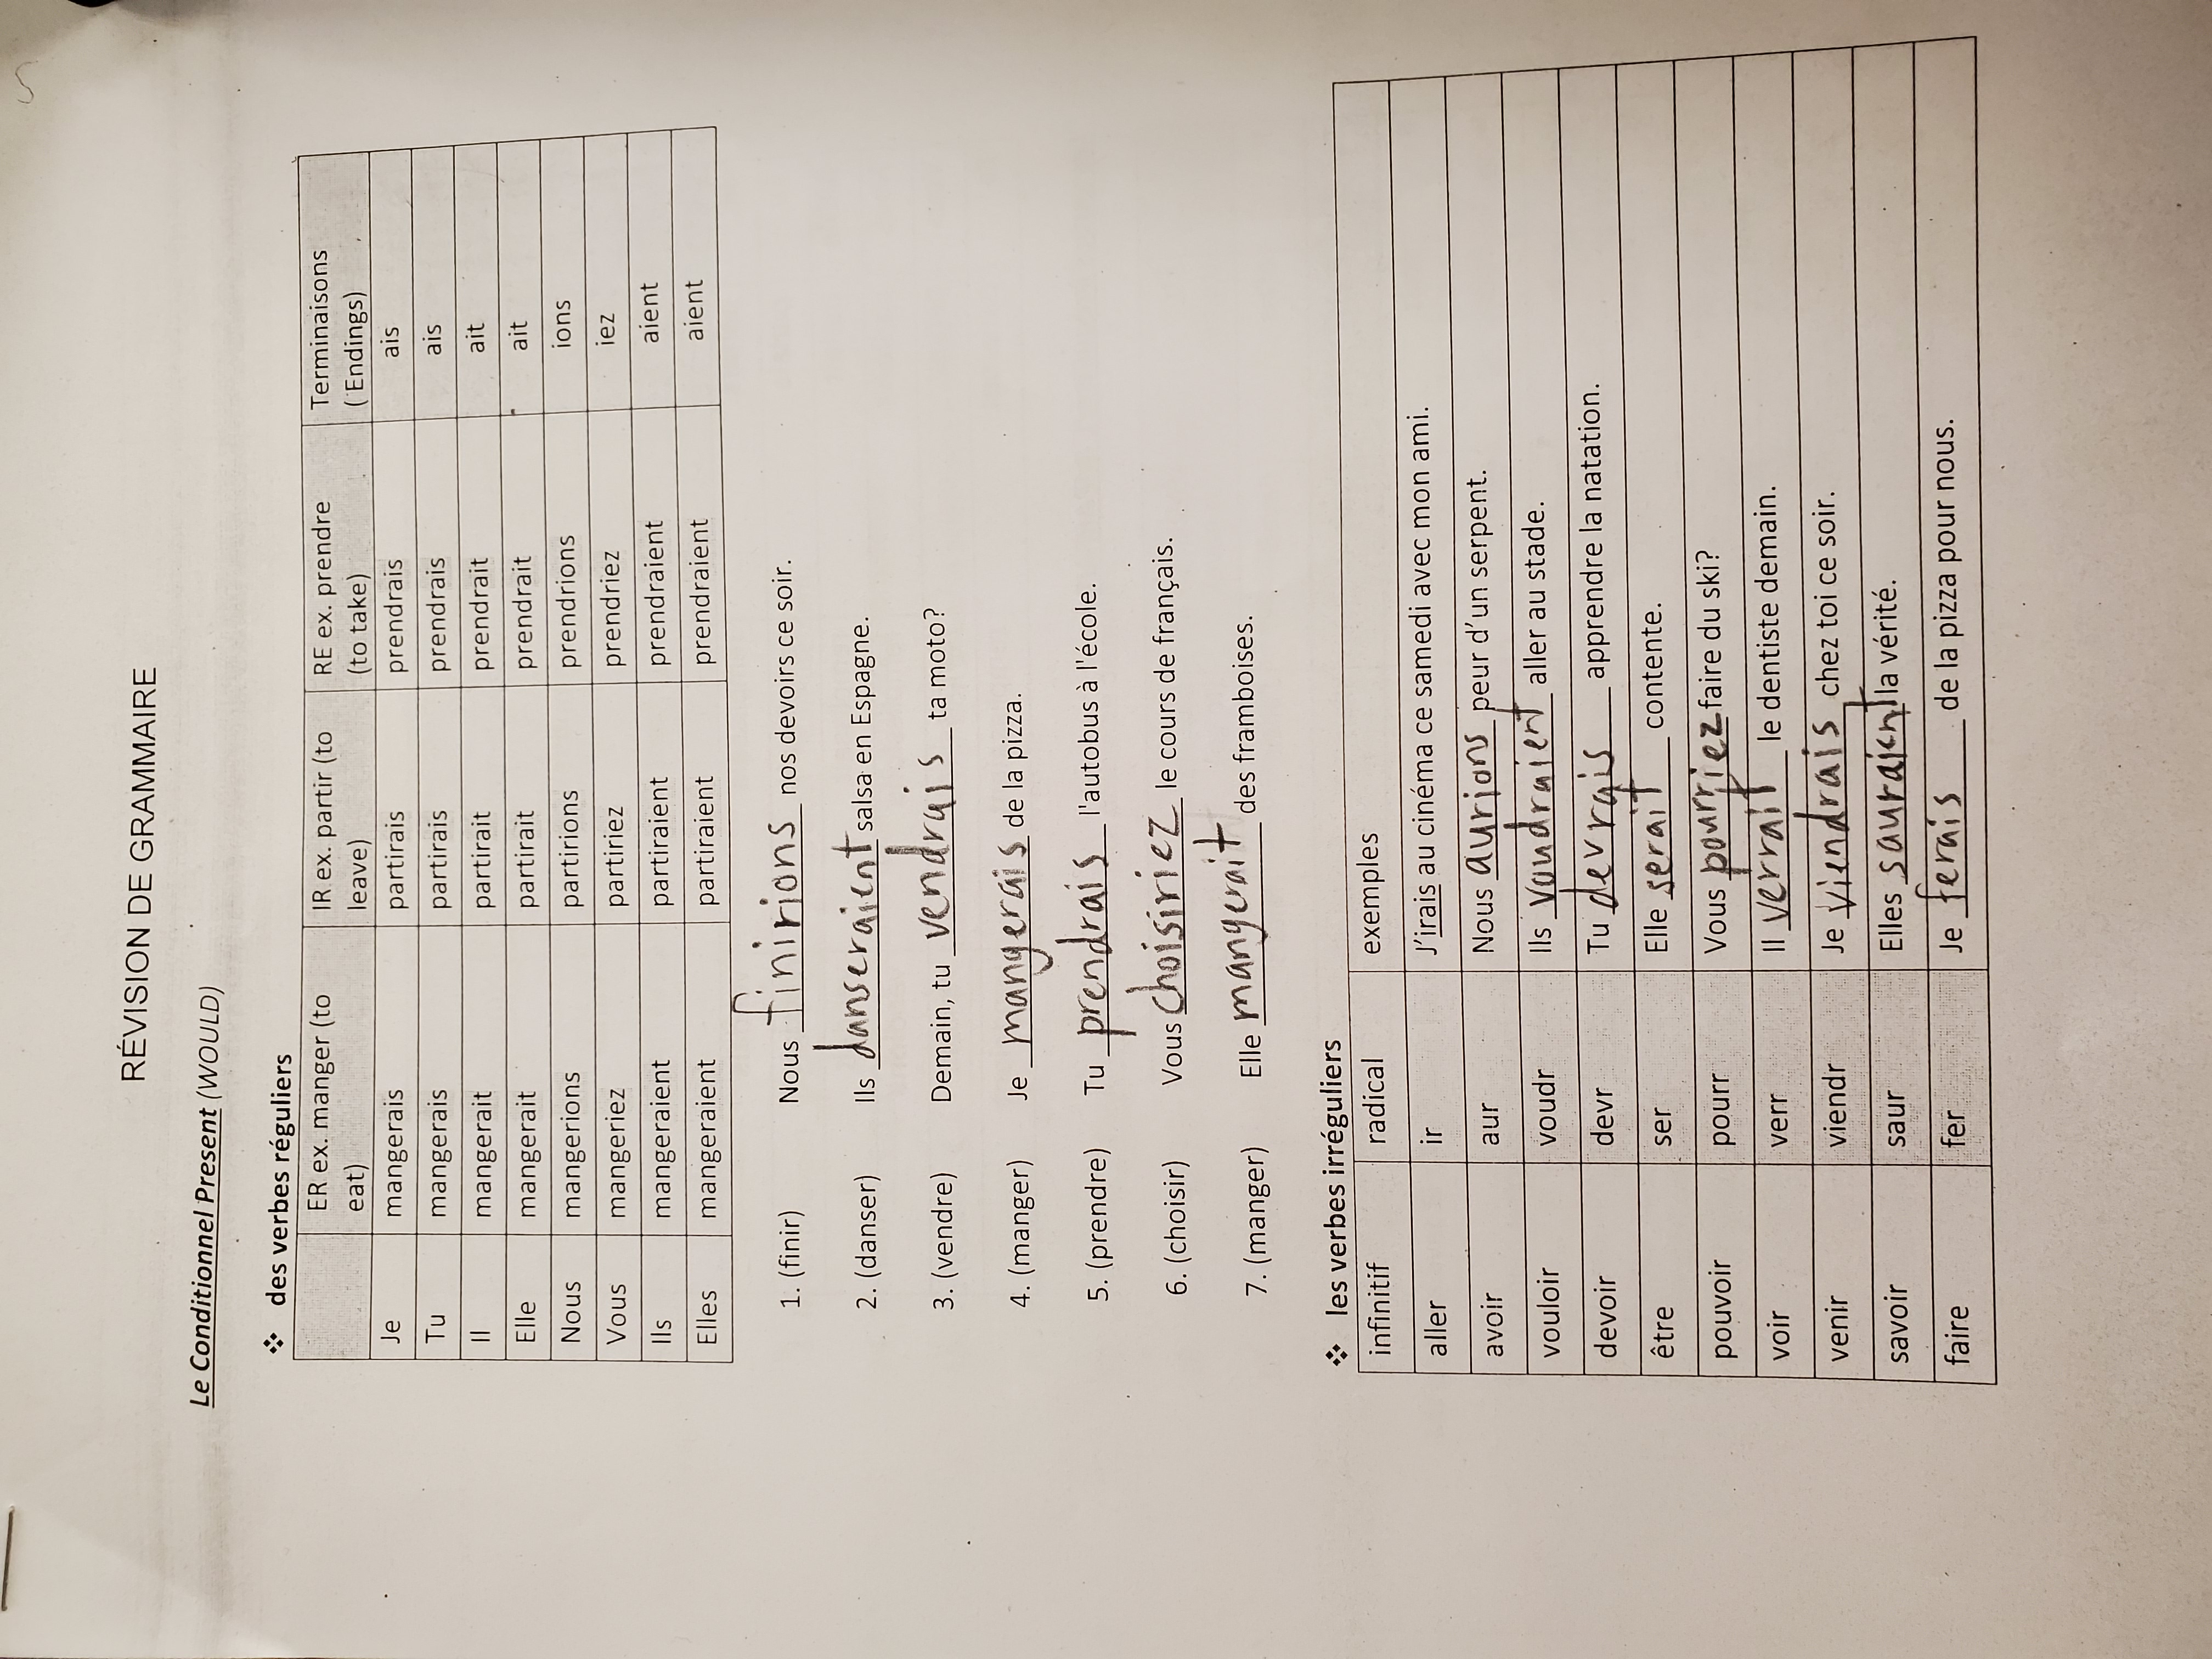 RÉVISION DE GRAMMAIRE
Le Conditionnel Present (WOULD)
❖ des verbes réguliers
ER ex. manger (to eat) IR ex. partir (to leave) RE ex. prendre (to take) Terminaisons ( Endings)
Je mangerais partirais prendrais ais
Tu mangerais partirais prendrais ais
Il mangerait partirait prendrait ait
Elle mangerait partirait prendrait ait
Nous mangerions partirions prendrions ions
Vous mangeriez partiriez prendriez iez
Ils mangeraient partiraient prendraient aient
Elles mangeraient partiraient prendraient aient
1. (finir) Nous finirions nos devoirs ce soir.
2. (danser) Ils danseraient salsa en Espagne.
3. (vendre) Demain, tu vendrais ta moto?
4. (manger) Je mangerais de la pizza.
5. (prendre) Tu prendrais l'autobus à l'école.
6. (choisir) Vous choisiriez le cours de français.
7. (manger) Elle mangerait des framboises.
❖ les verbes irréguliers
infinitif radical exemples
aller ir J'irais au cinéma ce samedi avec mon ami.
avoir aur Nous aurions peur d'un serpent.
vouloir voudr Ils voudraient aller au stade.
devoir devr Tu devrais apprendre la natation.
être ser Elle serait contente.
pouvoir pourr Vous pourriez faire du ski?
voir verr Il verrait le dentiste demain.
venir viendr Je viendrais chez toi ce soir.
savoir saur Elles sauraient la vérité.
faire fer Je ferais de la pizza pour nous.